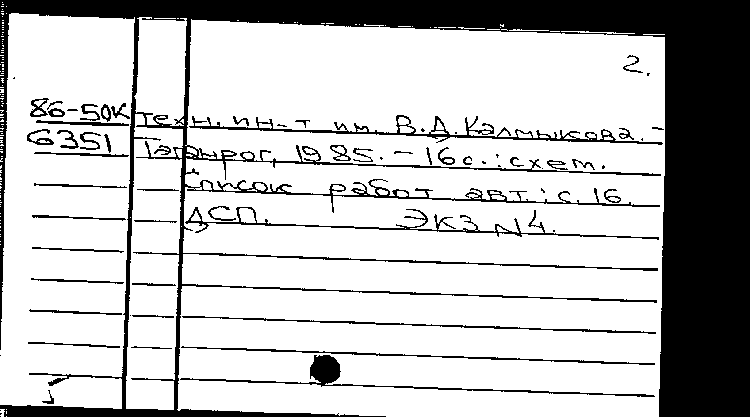 2.
86-50К техн. ин-т им. В.Д. Калмыкова. -
6351 Таганрог, 1985. - 16 с.: схем.
Список работ авт.: с. 16.
ДСП. ЭКЗ N 4.